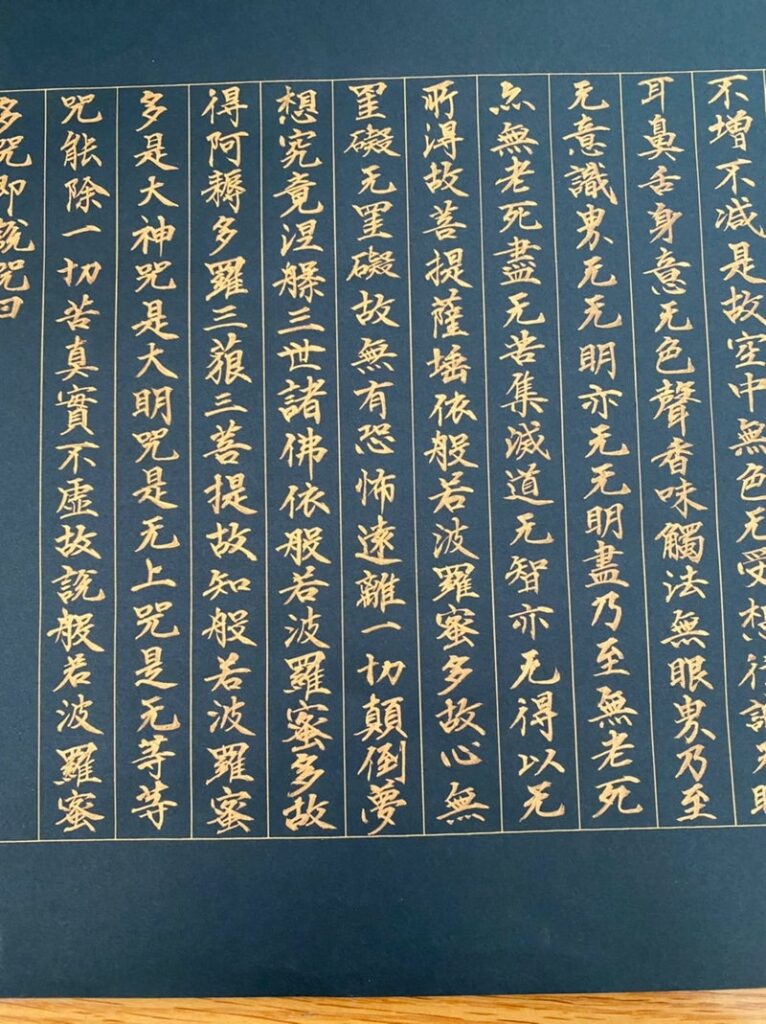 不增不減是故空中無色无受想行識无眼
耳鼻舌身意无色聲香味觸法無眼界乃至
无意識界无无明亦无无明盡乃至無老死
亦無老死盡无苦集滅道无智亦无得以无
所得故菩提薩埵依般若波羅蜜多故心無
罣礙无罣礙故無有恐怖遠離一切顛倒夢
想究竟涅槃三世諸佛依般若波羅蜜多故
得阿耨多羅三藐三菩提故知般若波羅蜜
多是大神咒是大明咒是无上咒是无等等
咒能除一切苦真實不虛故說般若波羅蜜
多咒即說咒曰